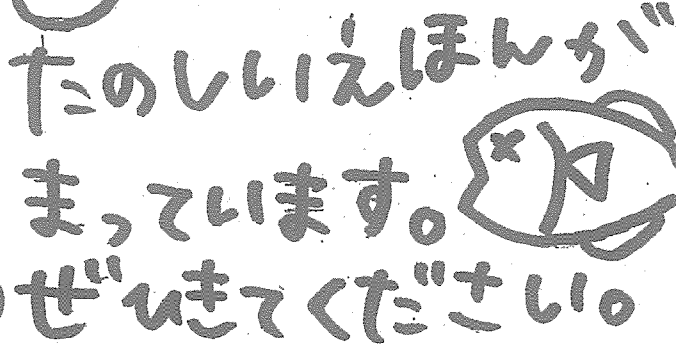 たのしいえほんが
まっています。
ぜひきてください。